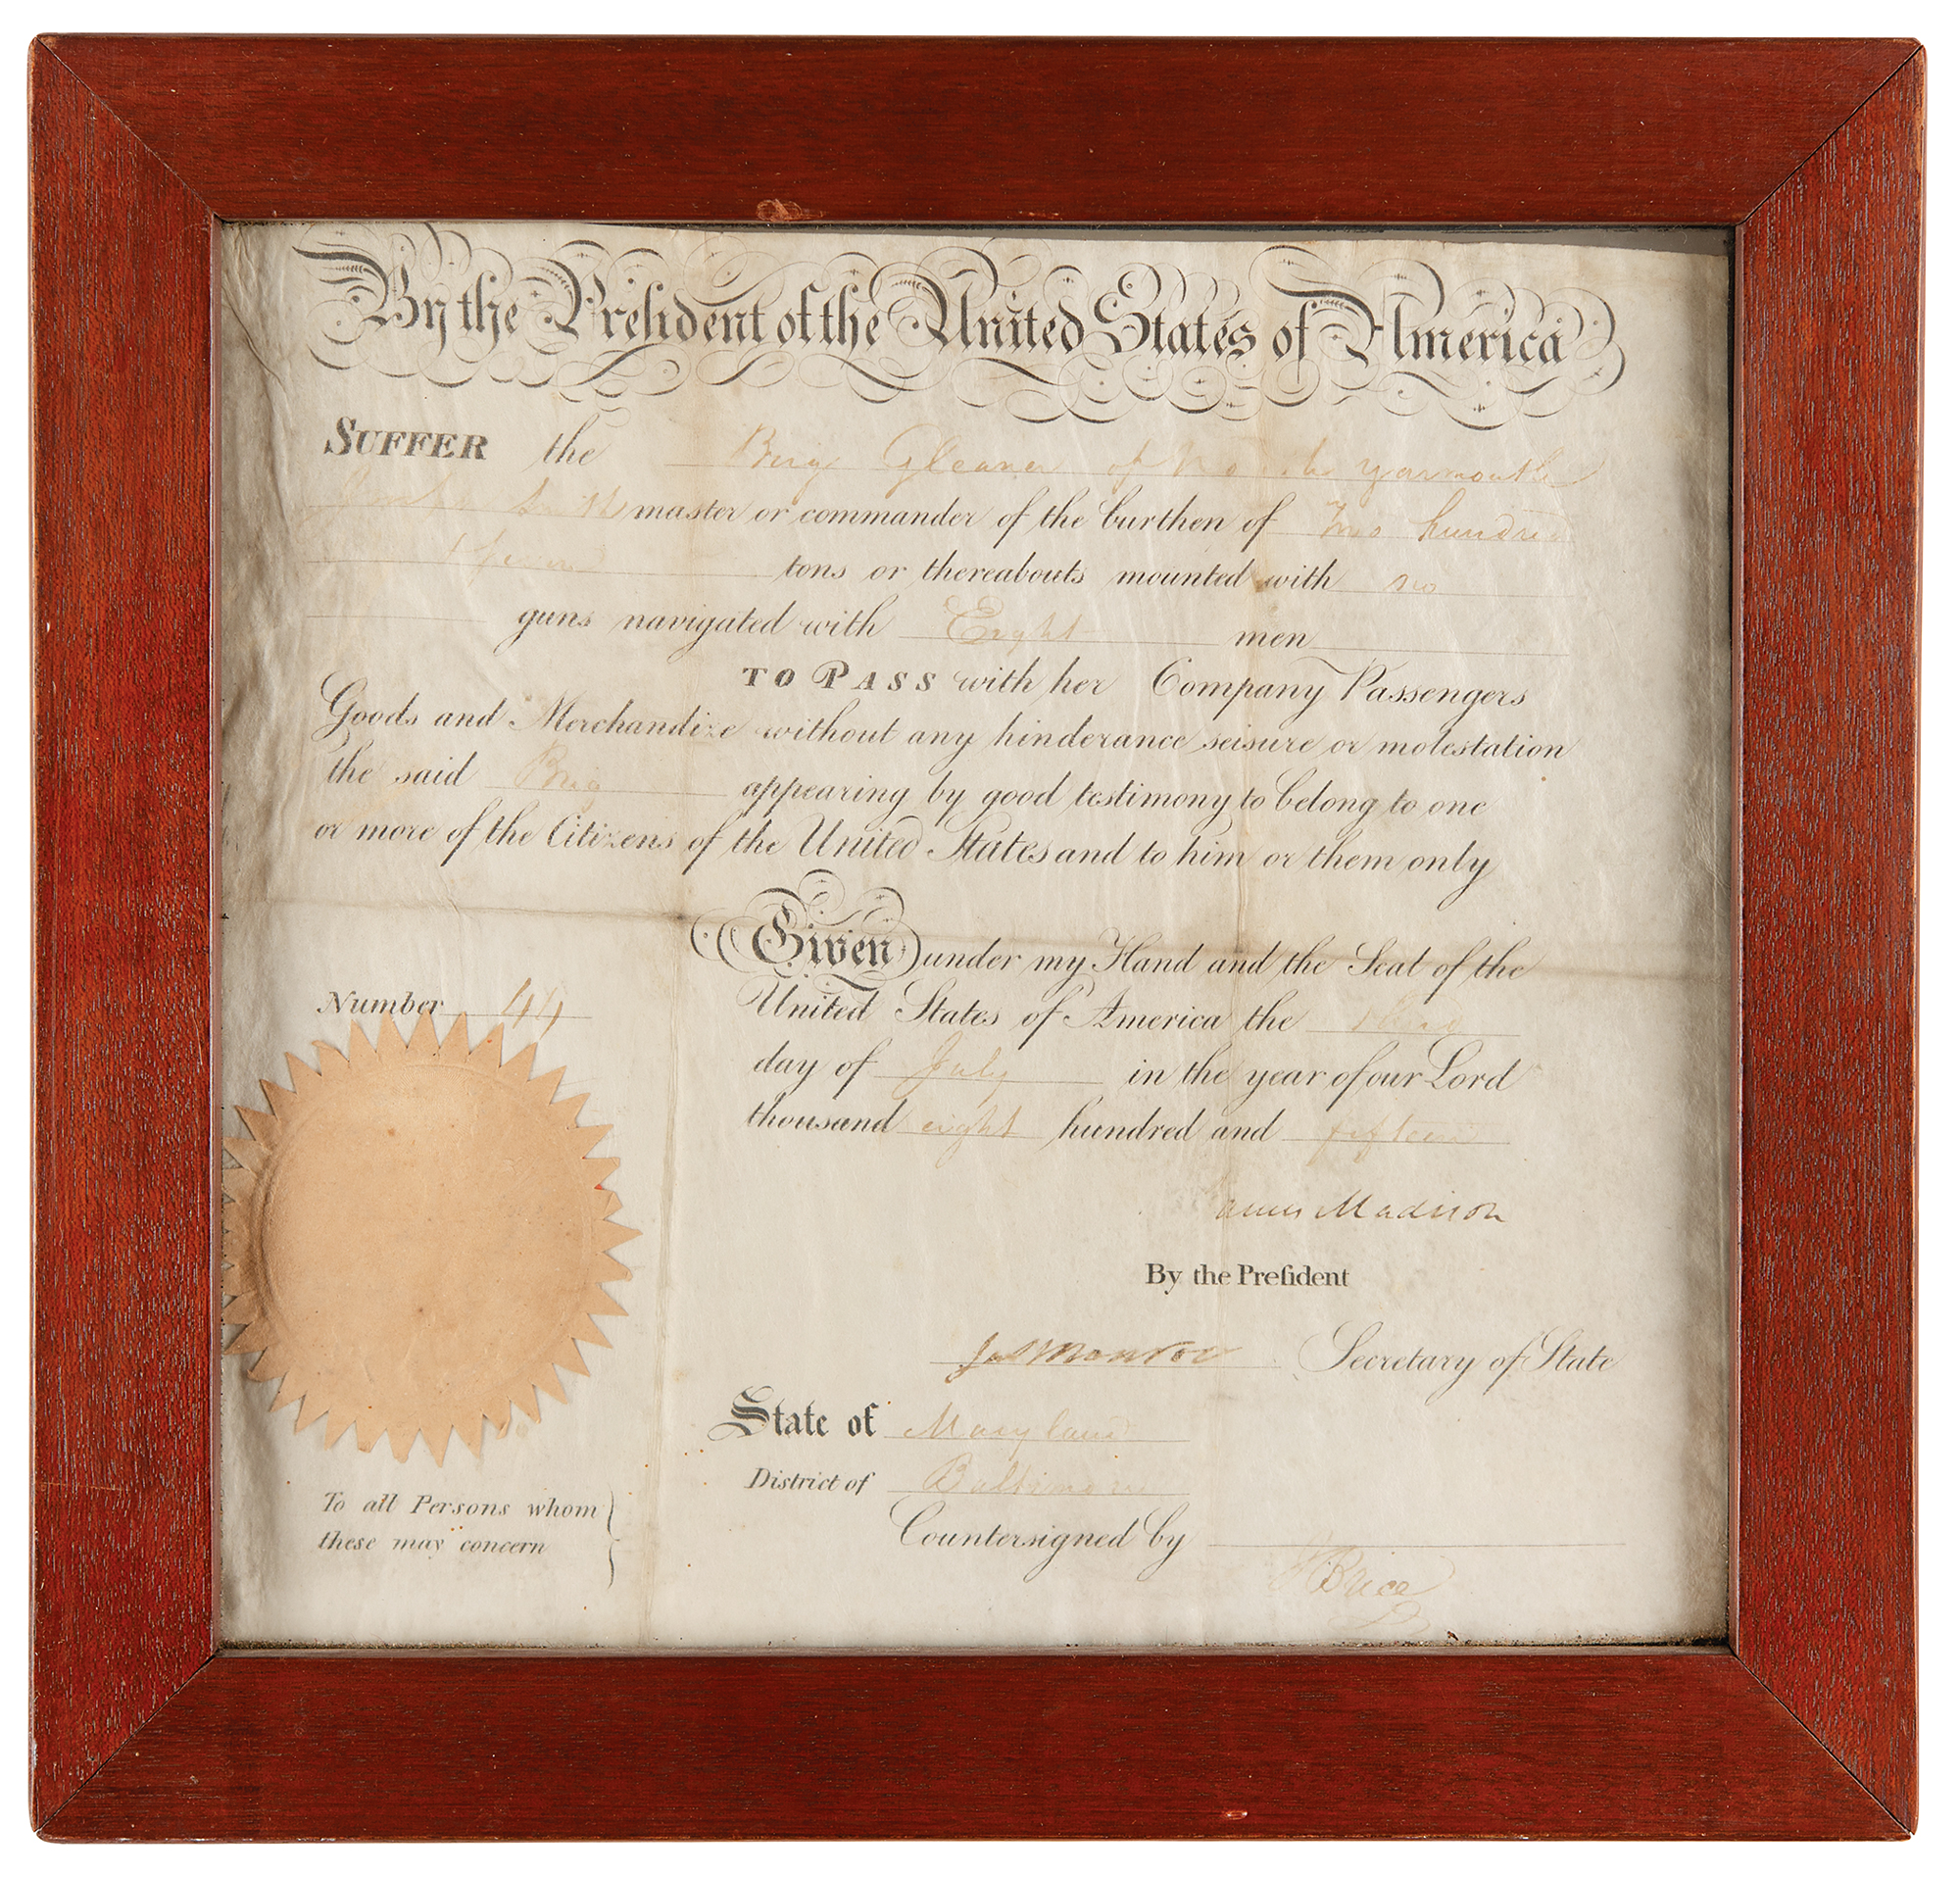 By the Preſident of the United States of America
SUFFER the Brig Gleaner of North Yarmouth
Smith master or commander of the burthen of Two hundred
tons or thereabouts mounted with no
guns navigated with Eight men
TO PASS with her Company Passengers
Goods and Merchandize without any hinderance seisure or molestation
the said Brig appearing by good testimony to belong to one
or more of the Citizens of the United States and to him or them only
Given under my Hand and the Seal of the
United States of America the third
day of July in the year of our Lord
thousand eight hundred and fifteen
Number 44
James Madison
By the Preſident
Jas Monroe Secretary of State
State of Maryland
District of Baltimore
Countersigned by
Brice
To all Persons whom
these may concern